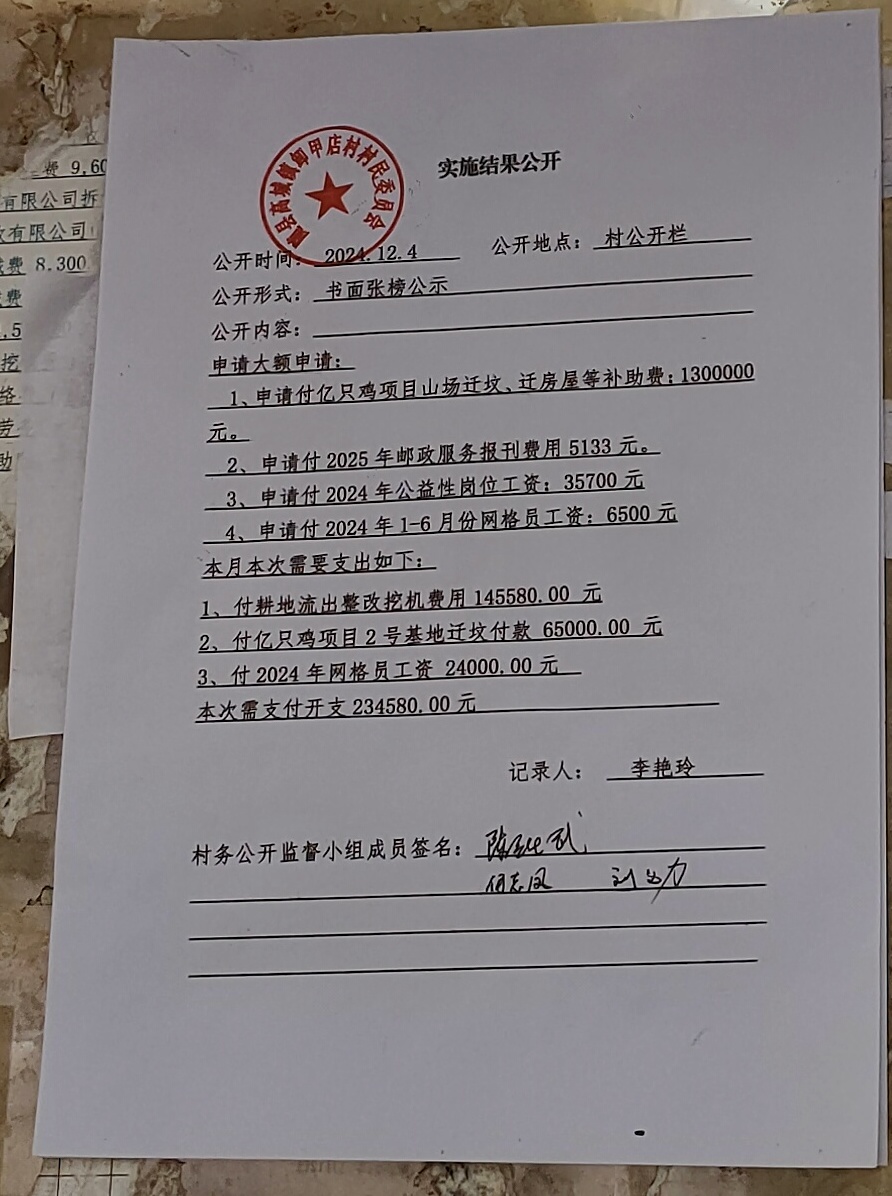 费 9,60
有限公司拆
有限公司
费 8.300
费
.5
挖
络
劳
助
县高城镇卸甲店村村民委员会
实施结果公开
公开时间: 2024.12.4 公开地点: 村公开栏
公开形式: 书面张榜公示
公开内容:
申请大额申请:
1、申请付亿只鸡项目山场迁坟、迁房屋等补助费:1300000
元。
2、申请付 2025 年邮政服务报刊费用 5133 元。
3、申请付 2024 年公益性岗位工资: 35700 元
4、申请付 2024 年 1-6 月份网格员工资: 6500 元
本月本次需要支出如下:
1、付耕地流出整改挖机费用 145580.00 元
2、付亿只鸡项目 2 号基地迁坟付款 65000.00 元
3、付 2024 年网格员工资 24000.00 元
本次需支付开支 234580.00 元
记录人: 李艳玲
村务公开监督小组成员签名:
何志凤